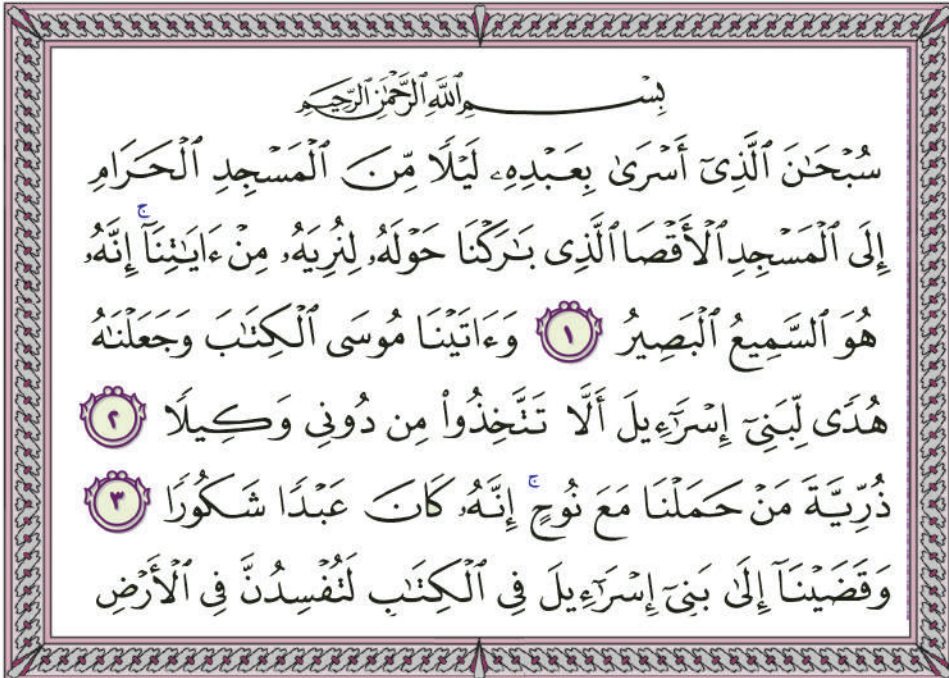 بِسْمِ ٱللَّهِ ٱلرَّحْمَٰنِ ٱلرَّحِيمِ
سُبْحَٰنَ ٱلَّذِىٓ أَسْرَىٰ بِعَبْدِهِۦ لَيْلًا مِّنَ ٱلْمَسْجِدِ ٱلْحَرَامِ
إِلَى ٱلْمَسْجِدِ ٱلْأَقْصَا ٱلَّذِى بَٰرَكْنَا حَوْلَهُۥ لِنُرِيَهُۥ مِنْ ءَايَٰتِنَآ ۚ إِنَّهُۥ
هُوَ ٱلسَّمِيعُ ٱلْبَصِيرُ ١ وَءَاتَيْنَا مُوسَى ٱلْكِتَٰبَ وَجَعَلْنَٰهُ
هُدًى لِّبَنِىٓ إِسْرَٰٓءِيلَ أَلَّا تَتَّخِذُوا۟ مِن دُونِى وَكِيلًا ٢
ذُرِّيَّةَ مَنْ حَمَلْنَا مَعَ نُوحٍ ۚ إِنَّهُۥ كَانَ عَبْدًا شَكُورًا ٣
وَقَضَيْنَآ إِلَىٰ بَنِىٓ إِسْرَٰٓءِيلَ فِى ٱلْكِتَٰبِ لَتُفْسِدُنَّ فِى ٱلْأَرْضِ